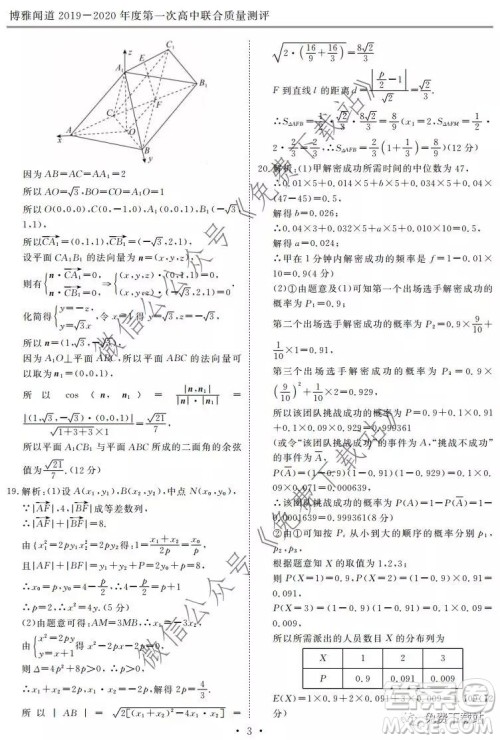 博雅闻道 2019-2020 年度第一次高中联合质量测评
因为 AB=AC=AA₁=2
所以 AO=√3,BO=CO=A₁O=1
所以 O(0,0,0),C(0,-1,0),A₁(0,0,1),B₁(-√3,
1,1),
所以CA₁=(0,1,1),CB₁=(-√3,2,1)
设平面 CA₁B₁ 的法向量为 n=(x,y,z)
则有{n·CA₁=0, n·CB₁=0, ⇒{(x,y,z)·(0,1,1)=0, (x,y,z)·(-√3,2,1)=0
化简得{y=-z, √3x=y, 令 x=1
所以 n=(1,√3,-√3)
因为 A₁O⊥平面 ABC,所以平面 ABC 的法向量可
以取为 n₁=(0,0,1)
所以 cos ⟨n,n₁⟩ = |n·n₁|/|n|·|n₁| =
|(1,√3,-√3)·(0,0,1)|/√(1+3+3)×1=√21/7.
所以平面 A₁CB₁ 与平面 ABC 所成的二面角的余弦
值为√21/7.(12 分)
19.解析:(1)设 A(x₁,y₁),B(x₂,y₂),中点 N(x₀,y₀)
∵|AF|,4,|BF|成等差数列,
∴|AF|+|BF|=8.
由{x₁²=2py₁ x₂²=2py₂ 得:1=(x₁+x₂)/2p=x₀/p
∴x₀=p,y₀=4-p/2,∴4-p/2=p+1
∴p=2,∴x²=4y.(5 分)
(2)由题意可得:AM=3MB,∴x₁=-3x₂
由{x²=2py y=x+1 得 x²-2px-2p=0.
则 Δ=4p²+8p>0,∴p>0
∴x₁+x₂=2p,x₁·x₂=-2p,∴p=4/3.
√(2·(16/9+16/3))=8√2/3
F 到直线 l 的距离 d=|p/2-1|/√2=√2/6
20.解析:(1)甲解密成功所需时间的中位数为 47,
∴0.01×5+0.014×5+b×5+0.034×5+0.04×
(47-45)=0.5.
解得 b=0.026;
∴0.04×3+0.032×5+a×5+0.010×10=0.5,
解得 a=0.024;
∴甲在 1 分钟内解密成功的频率是 f=1-0.01×
10=0.9(4 分)
(2)①由题意及(1)可知第一个出场选手解密成功
的概率为 P₁=0.9,
第二个出场选手解密成功的概率为 P₂=0.9×
9/10+1/10×1=0.91,
第三个出场选手解密成功的概率为 P₃=0.9×
(9/10)²+1/10×2=0.929,
所以该团队挑战成功的概率为 P=0.9+0.1×0.91
+0.1×0.09×0.929=0.999361
(或令“该团队挑战成功”的事件为 A,“挑战不成功”
的事件为 A,
P(A)=(1-0.9)(1-0.91)(1-0.929)=0.1×0.
09×0.071=0.000639,
∴该团队挑战成功的概率为 P=1-P(A)=1-
0.000639=0.999361(8 分)
②由①可知按 Pᵢ 从小到大的顺序的概率分别为 p₁,
p₂,p₃,
根据题意知 X 的取值为 1,2,3;
则 P(X=1)=0.9,P(X=2)=(1-0.9)×0.91=
0.091,
P(X=3)=(1-0.9)(1-0.91)=0.1×0.09=
0.009,
所以所需派出的人员数目 X 的分布列为
X 1 2 3
P 0.9 0.091 0.009
微信公众号《免费下载站》
微信公众号《免费下载站》
· 3 ·
答案圈
免费下载站